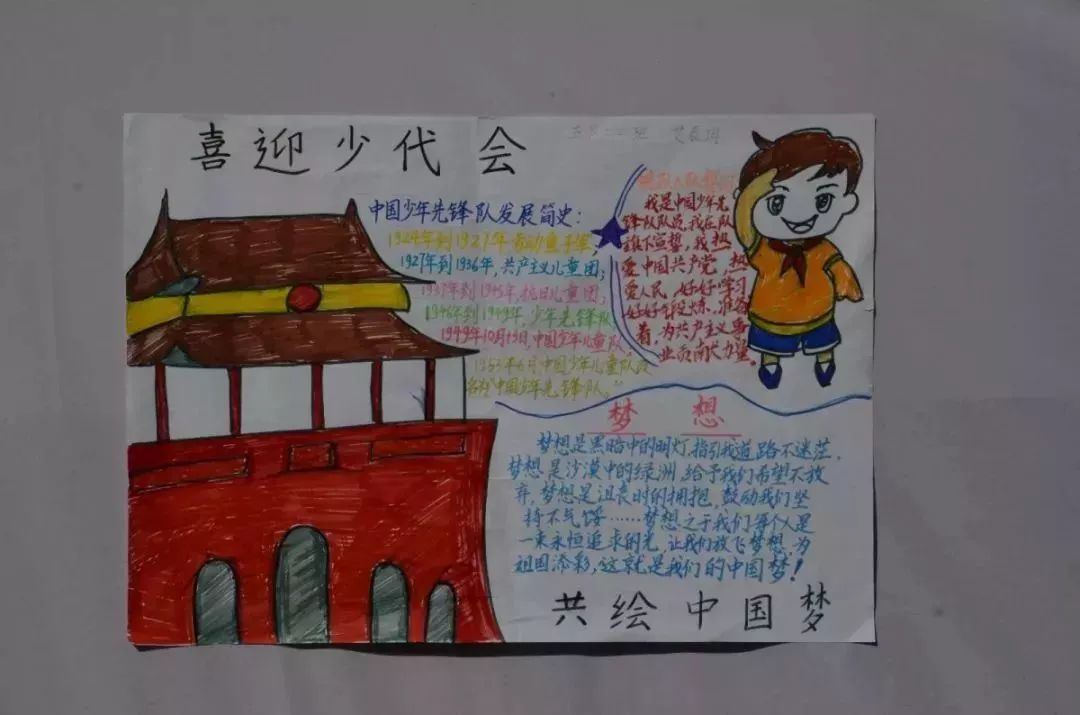 喜迎少代会
中国少年先锋队发展简史：
1924年到1927年劳动童子军；
1927年到1936年，共产主义儿童团；
1937年到1945年，抗日儿童团；
1946年到1949年，少年先锋队
1949年10月13日，中国少年儿童队，
1953年6月中国少年儿童队改
名为“中国少年先锋队。”
我是中国少年先
锋队队员，我在队
旗下宣誓，我热
爱中国共产党，热
爱人民，好好学习
好好锻炼，准备
着，为共产主义事
业贡献力量。
梦 想
梦想是黑暗中的明灯，指引我道路不迷茫．
梦想是沙漠中的绿洲，给予我们希望不放
弃，梦想是沮丧时的拥抱，鼓动我们坚
持不气馁……梦想之于我们每个人是
一束永恒追求的光，让我们放飞梦想，为
祖国添彩，这就是我们的中国梦！
共绘中国梦